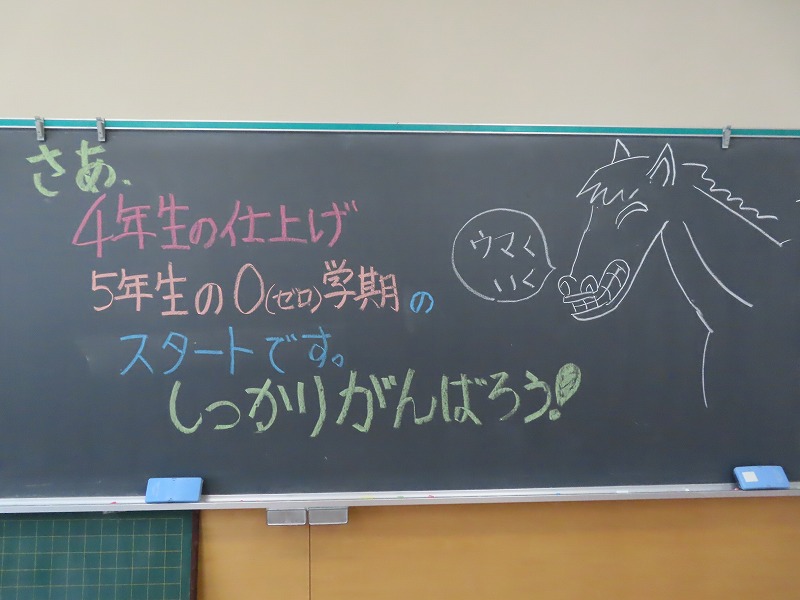 さあ、
4年生の仕上げ
5年生の0(ゼロ)学期の
スタートです。
しっかりがんばろう!
ウマく
いく